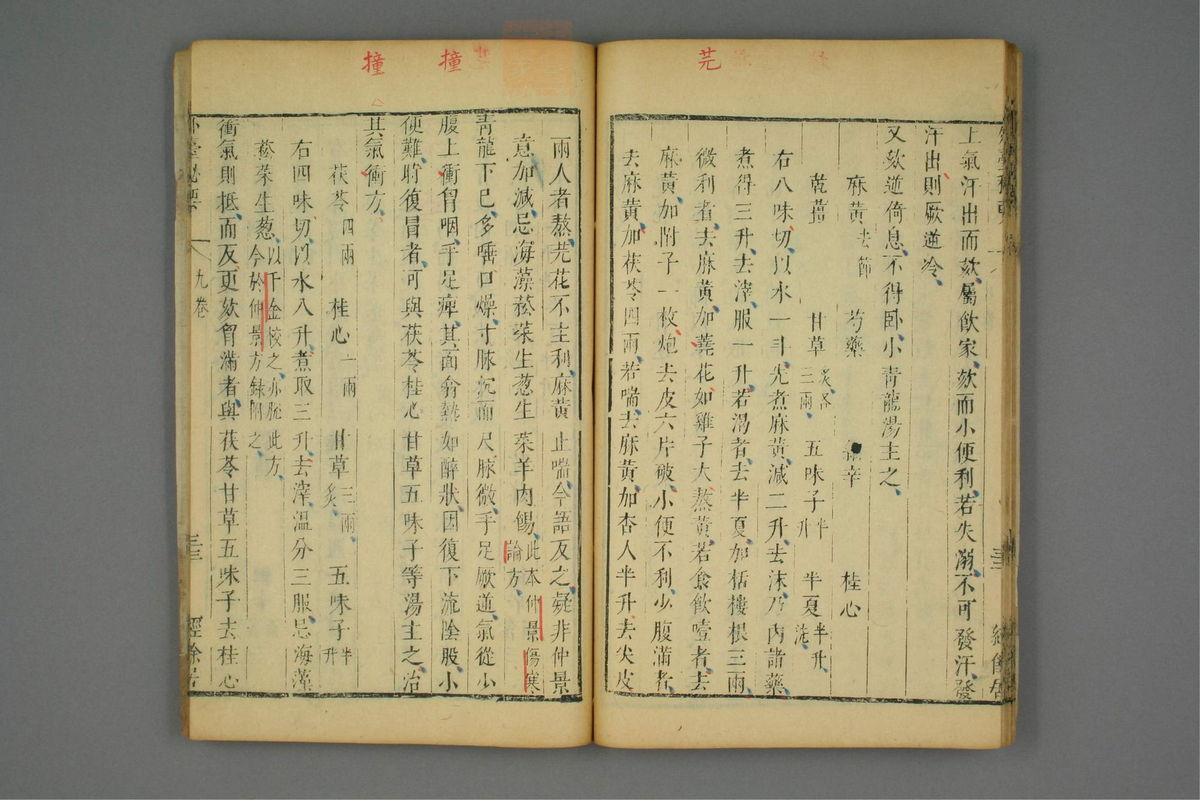 芫
上氣汗出而欬屬飲家欬而小便利若失溺不可發汗發
汗出則厥逆冷
又欬逆倚息不得卧小青龍湯主之
麻黃去節 芍藥 辛 桂心
乾薑 甘草三兩炙各 五味子半升 半夏半升洗
右八味切以水一斗先煮麻黃減二升去沫乃內諸藥
煮得三升去滓服一升若渴者去半夏加栝樓根三兩
微利者去麻黃加蕘花如雞子大熬黃若食飲噎者去
麻黃加附子一枚炮去皮六片破小便不利少腹滿者
去麻黃加茯苓四兩若喘去麻黃加杏人半升去尖皮
撞
撞
兩人者熬芫花不主利麻黃止喘今語反之疑非仲景
意加減忌海藻菘菜生葱生菜羊肉餳此本仲景傷寒論方
青龍下已多唾口燥寸脉沉而尺脉微手足厥逆氣從小
腹上衝胷咽手足痺其面翕熱如醉狀因復下流陰股小
便難時復冒者可與茯苓桂心甘草五味子等湯主之治
其氣衝方
茯苓四兩 桂心一兩 甘草三兩炙 五味子半升
右四味切以水八升煮取三升去滓温分三服忌海藻
菘菜生葱以千金校之亦脫此方今於仲景方錄附之
衝氣則抵而反更欬胷滿者與茯苓甘草五味子去桂心
外臺祕要 九卷 三三 經餘居